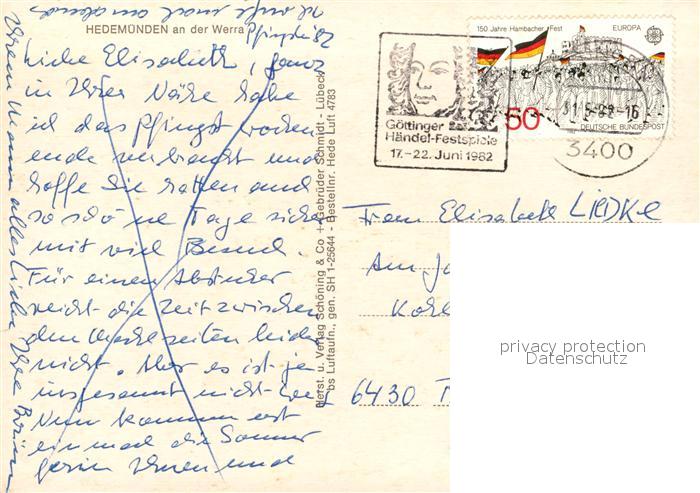 HEDEMÜNDEN an der Werra
Pfingsten 82
Liebe Elisabeth, ganz
in Ihrer Nähe habe
ich das Pfingstwochen
ende verbracht und
hoffe Sie hatten auch
so schöne Tage sicher
mit viel Besuch.
Für einen Abstecher
reicht die Zeit zwischen
den Mahlzeiten leider
nicht. Aber es ist ja
insgesamt nicht weit
Nun kommen erst
einmal die Sommer
ferien Ihnen und
Ihrem Mann alles Liebe Ihre
Ich rufe mal an abends
Horst. u. Verlag Schöning & Co + Gebrüder Schmidt - Lübeck
bs Luftaufn., gen. SH 1-25644 - Bestellnr. Hede Luft 4783
Göttinger
Händel-Festspiele
17.-22. Juni 1982
150 Jahre Hambacher Fest
EUROPA
60
DEUTSCHE BUNDESPOST
3400
Frau Elisabeth LIEDKE
Am
6430
privacy protection
Datenschutz